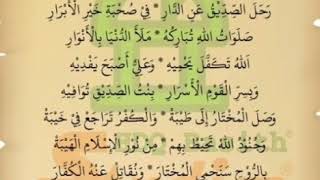 رَحَلَ الصِّدِّيقُ عَنِ الدَّارِ * فِي صُحْبَةِ خَيْرِ الْأَبْرَارِ
صَلَوَاتُ اللهِ تُبَارِكُهُ * مَلَأَ الدُّنْيَا بِالْأَنْوَارِ
اَللهُ تَكَفَّلَ يَحْمِيهِ * وَعَلِيٌّ أَصْبَحَ يَفْدِيهِ
وَبِسِرِّ الْقَوْمِ الْأَسْرَارِ * بِنْتُ الصِّدِّيقِ تُوَافِيهِ
وَصَلَ الْمُخْتَارُ إِلَى طَيْبَةْ * وَالْكُفْرُ تَرَاجَعَ فِي خَيْبَةْ
وَجُنُودُ اللهِ تُحِيطُ بِهِمْ * مِنْ نُورِ الْإِسْلَامِ الْهَيْبَةْ
بِالرُّوحِ سَنَحْمِي الْمُخْتَارَ * وَنُقَاتِلُ عَنْهُ الْكُفَّارَ